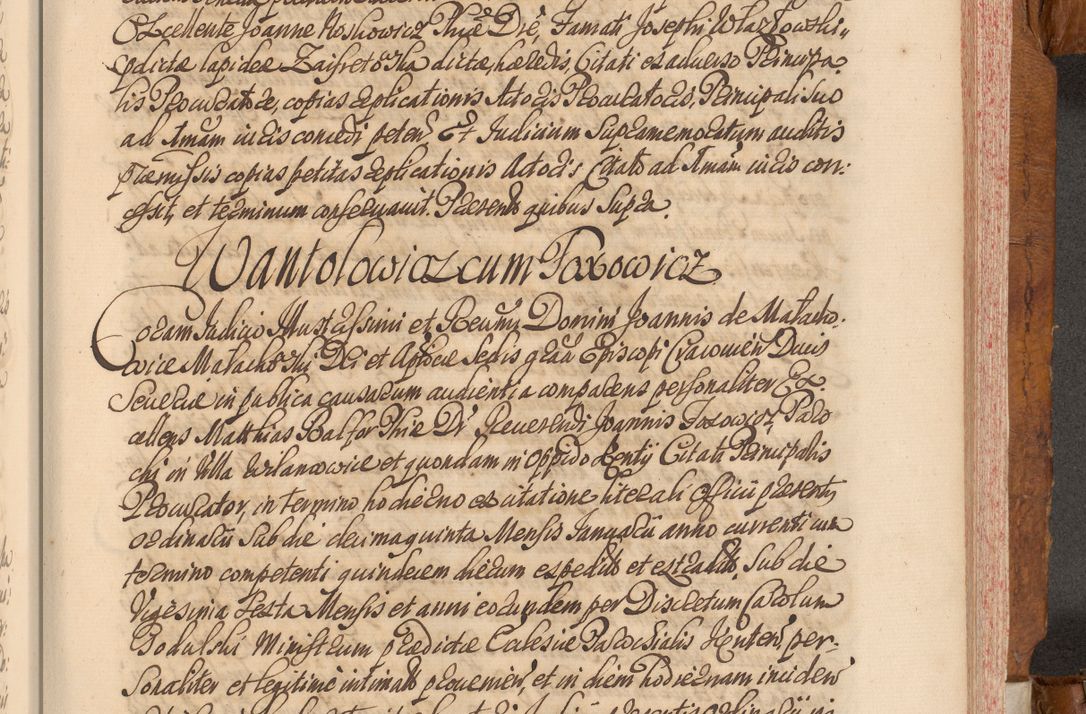 Excellente Joanne Roskowicz Phiae Dre, Famati Josephi Wlazłowski„
pdictae lapideae Zaifretowska dictae, haeredis, Citati ex adverso Principa
lis Procuratore, copias explicationis Actoris Procuratoris, Principali suo
ad Amam iuris concedi peten̄ Et Iudicium supramemoratum auditis
praemissis copias petitas explicationis Actoris Citato ad Amam iuris con:
cessit, et terminum conservavit. Praesentib quibus supra.
Wantolowicz cum Toxowicz
Coram Iudicio Illustrissimi et Reverm̄i Domini Joannis de Małacho:
wice Małachowski Dei et Aplicae Sedis grāa Episcopi Cracovien̄ Ducis
Severiae in publica causarum audientia comparens personaliter Ex:
cellens Matthias Balser Phiae Dr̄ Reverendi Joannis Toxowicz, Paro
chi in Villa Wilamowice et quondam in Oppido Kenty Citati Principalis
Procurator, in termino hodierno ex citatione literali Officii praesentis
ordinarii sub die decima quinta Mensis Januarii anno currenti cum
termino competenti quindecim dierum expedito et extradito, sub die
Vigesima sexta Mensis et anni eorundem per Discretum Carolum
Bodulski Ministrum praedictae Eccłesiae Parochialis Kenten̄, per-
sonaliter et legitime intimato provenien̄, et in diem hodiernam inciden̄